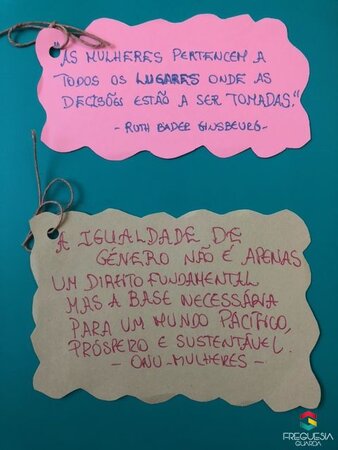 "AS MULHERES PERTENCEM A
TODOS OS LUGARES ONDE AS
DECISÕES ESTÃO A SER TOMADAS."
- RUTH BADER GINSBEURG -
A IGUALDADE DE
GÉNERO NÃO É APENAS
UM DIREITO FUNDAMENTAL
MAS A BASE NECESSÁRIA
PARA UM MUNDO PACÍFICO,
PRÓSPERO E SUSTENTÁVEL.
- ONU-MULHERES -
FREGUESIA
GUARDA